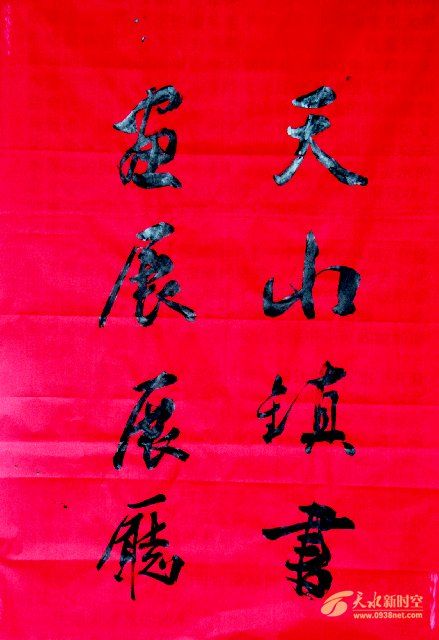 天山镇書
畫展展廳
天水新时空
www.0938net.com